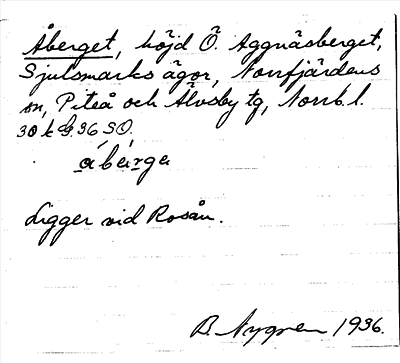 Åberget, höjd Ö. Aggnäsberget,
Sjulsmarks ägor, Norrfjärdens
sn, Piteå och Älvsby tg, Norrb. l.
30 k G. 36 SO.
åbærge
Ligger vid Rosån.
B. Nygren 1936.